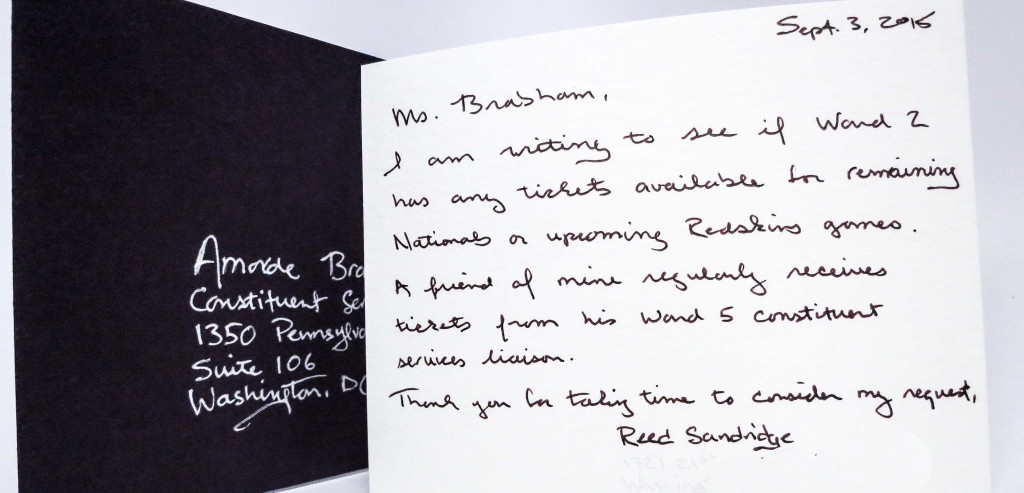 Amorde Bra
Constituent Ser
1350 Pennsylva
Suite 106
Washington, DC
Sept. 3, 2015
Ms. Brabham,
I am writing to see if Ward 2
has any tickets available for remaining
Nationals or upcoming Redskins games.
A friend of mine regularly receives
tickets from his Ward 5 constituent
services liaison.
Thank you for taking time to consider my request,
Reed Sandridge
1721 21st
Washing